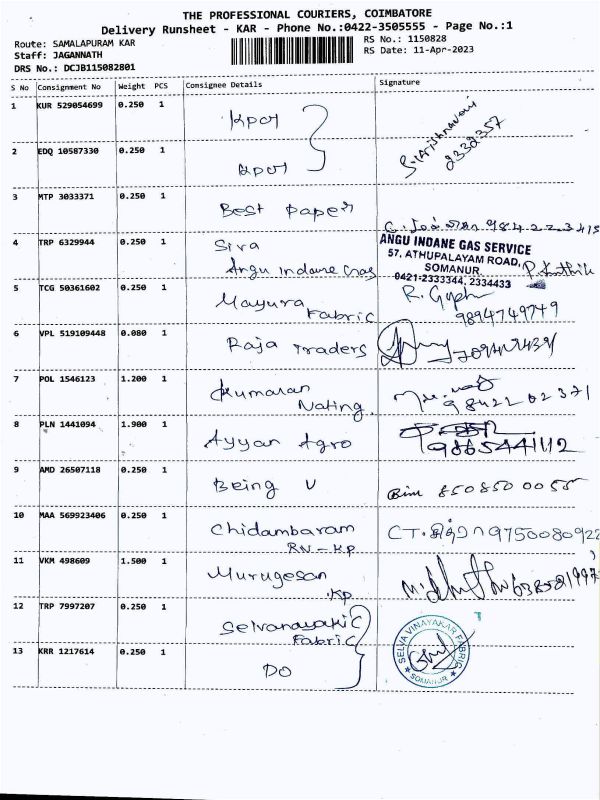 THE PROFESSIONAL COURIERS, COIMBATORE
Delivery Runsheet - KAR - Phone No.:0422-3505555 - Page No.:1
Route: SAMALAPURAM KAR
RS No.: 1150828
Staff: JAGANNATH
RS Date: 11-Apr-2023
DRS No.: DCJB115082801
S No Consignment No Weight PCS Consignee Details Signature
1 KUR 529054699 0.250 1 KPOT
2332357
2 EDQ 10587330 0.250 1 KPOT
3 MTP 3033371 0.250 1 Best Paper
4 TRP 6329944 0.250 1 Siva
Angu Indane Gas
ANGU INDANE GAS SERVICE
57, ATHUPALAYAM ROAD,
SOMANUR.
0421-2333344, 2334433
5 TCG 50361602 0.250 1 Mayura
Fabric
R. Goph
9894749749
6 VPL 519109448 0.080 1 Raja Traders
7 POL 1546123 1.200 1 Kumaran
Nating
98422 02371
8 PLN 1441094 1.900 1 Ayyan Agro
9865441112
9 AMD 26507118 0.250 1 Being U
850850 0055
10 MAA 569923406 0.250 1 Chidambaram
RN - KP
9750080922
11 VKM 498609 1.500 1 Murugesan
KP
12 TRP 7997207 0.250 1 Selvanayaki
Fabric
13 KRR 1217614 0.250 1 DO
SELVA VINAYAKAR FABRIC
SOMANUR